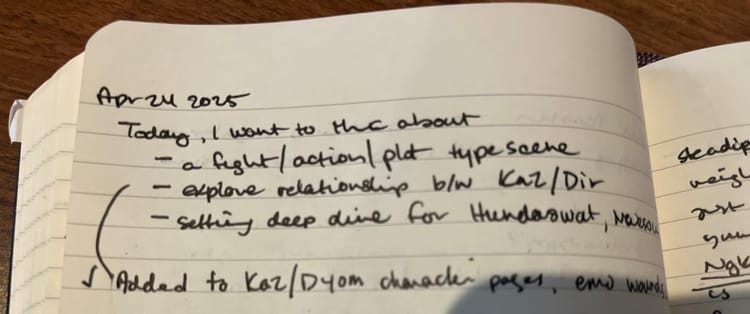 Apr 24 2025
Today, I want to thc about
- a fight/action/plot type scene
- explore relationship b/w Kaz/Dir
- setting deep dive for Hundaswat,
√ Added to Kaz/Dyom character pages, emo wounds
steadip
weigh
just
your
Ngk
is